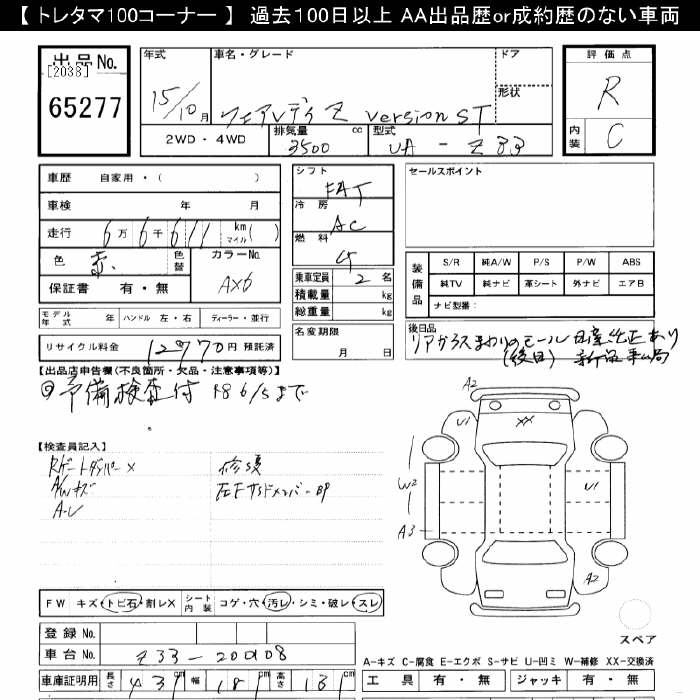 【 トレタマ100コーナー 】 過去100日以上 AA出品歴or成約歴のない車両
出品No.
[2038]
65277
年式 車名・グレード ドア 形状
15/10月 フェアレディZ version ST
2WD・4WD 排気量 3500 cc 型式 UA-Z33
評価点 R
内装 C
車歴 自家用・( )
車検 年 月
走行 6万6千611 km マイル( )
色 赤. 色替 カラーNo. AX6
保証書 有・無
モデル年式 年 ハンドル 左・右 ディーラー・並行
リサイクル料金 12970円 預託済
シフト FAT
冷房 AC
燃料 G
乗車定員 2 名
積載量 kg
総重量 kg
名変期限 月 日
セールスポイント
装備品 S/R 純A/W P/S P/W ABS
純TV 純ナビ 革シート 外ナビ エアB
ナビ型番:
後日品
リアガラスまわりのモール 日産純正あり
(後日)
【出品店申告欄(不良箇所・欠品・注意事項等)】
予備検査付 R8 6/5まで
【検査員記入】
Rゲートダンパー× 修復
A/Wキズ 左Fサイドメンバー
A-U
FW キズ・トビ石・割レX シート内装 コゲ・穴・汚レ・シミ・破レ・スレ
登録No.
車台No. Z33-200108
車庫証明用 長さ 431cm 幅 181cm 高さ 131cm
A2
U1 XX
W2 U1
A3
A2
スペア
A-キズ C-腐食 E-エクボ S-サビ U-凹ミ W-補修 XX-交換済
工具 有・無 ジャッキ 有・無